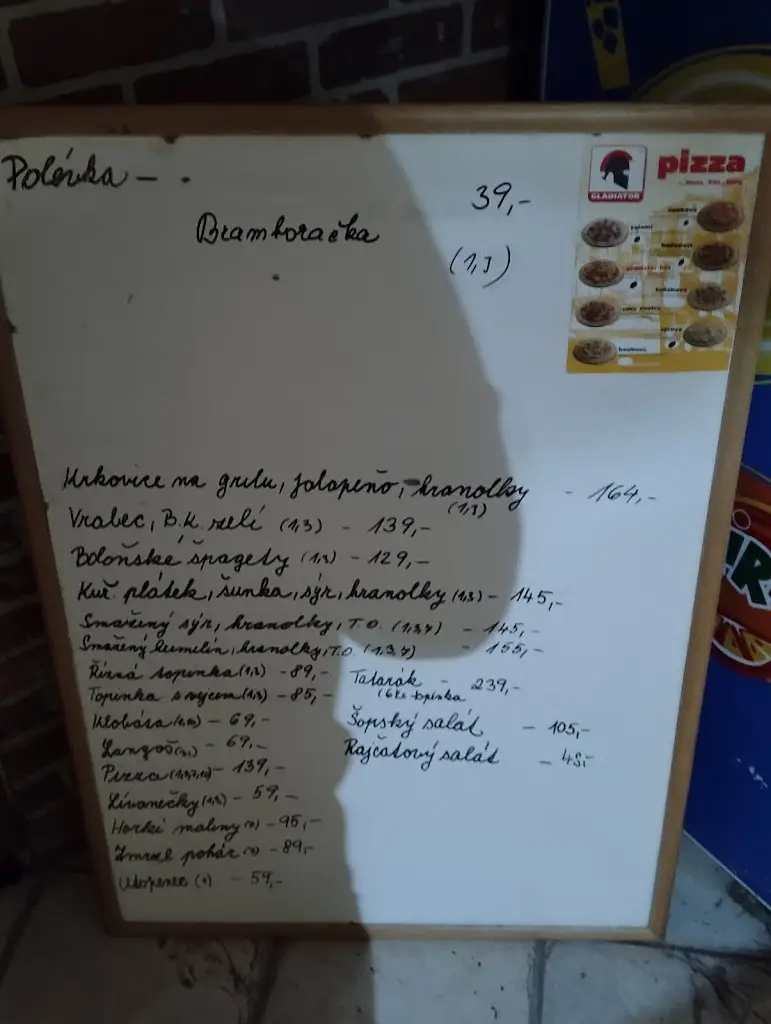 Polévka - .
39,-
Bramboračka
(1,3)
GLADIATOR
pizza
Krkovice na grilu, jalapeño, hranolky - 164,-
(1,3)
Vrabec, B.K. zelí (1,3) - 139,-
Boloňské špagety (1,3) - 129,-
Kuř. plátek, šunka, sýr, hranolky (1,3) - 145,-
Smažený sýr, hranolky, T.O. (1,3,7) - 145,-
Smažený hermelín, hranolky, T.O. (1,3,7) - 155,-
Řízná topinka (1,3) - 89,-
Topinka s vejcem (1,3) - 85,-
Klobása - 69,-
Langoš - 69,-
Pizza - 139,-
Lívanečky - 59,-
Horké maliny - 95,-
Zmrzl. pohár - 89,-
Utopenec - 59,-
Tatarák - 239,-
(6 ks topinka
Šopský salát - 105,-
Rajčatový salát - 45,-